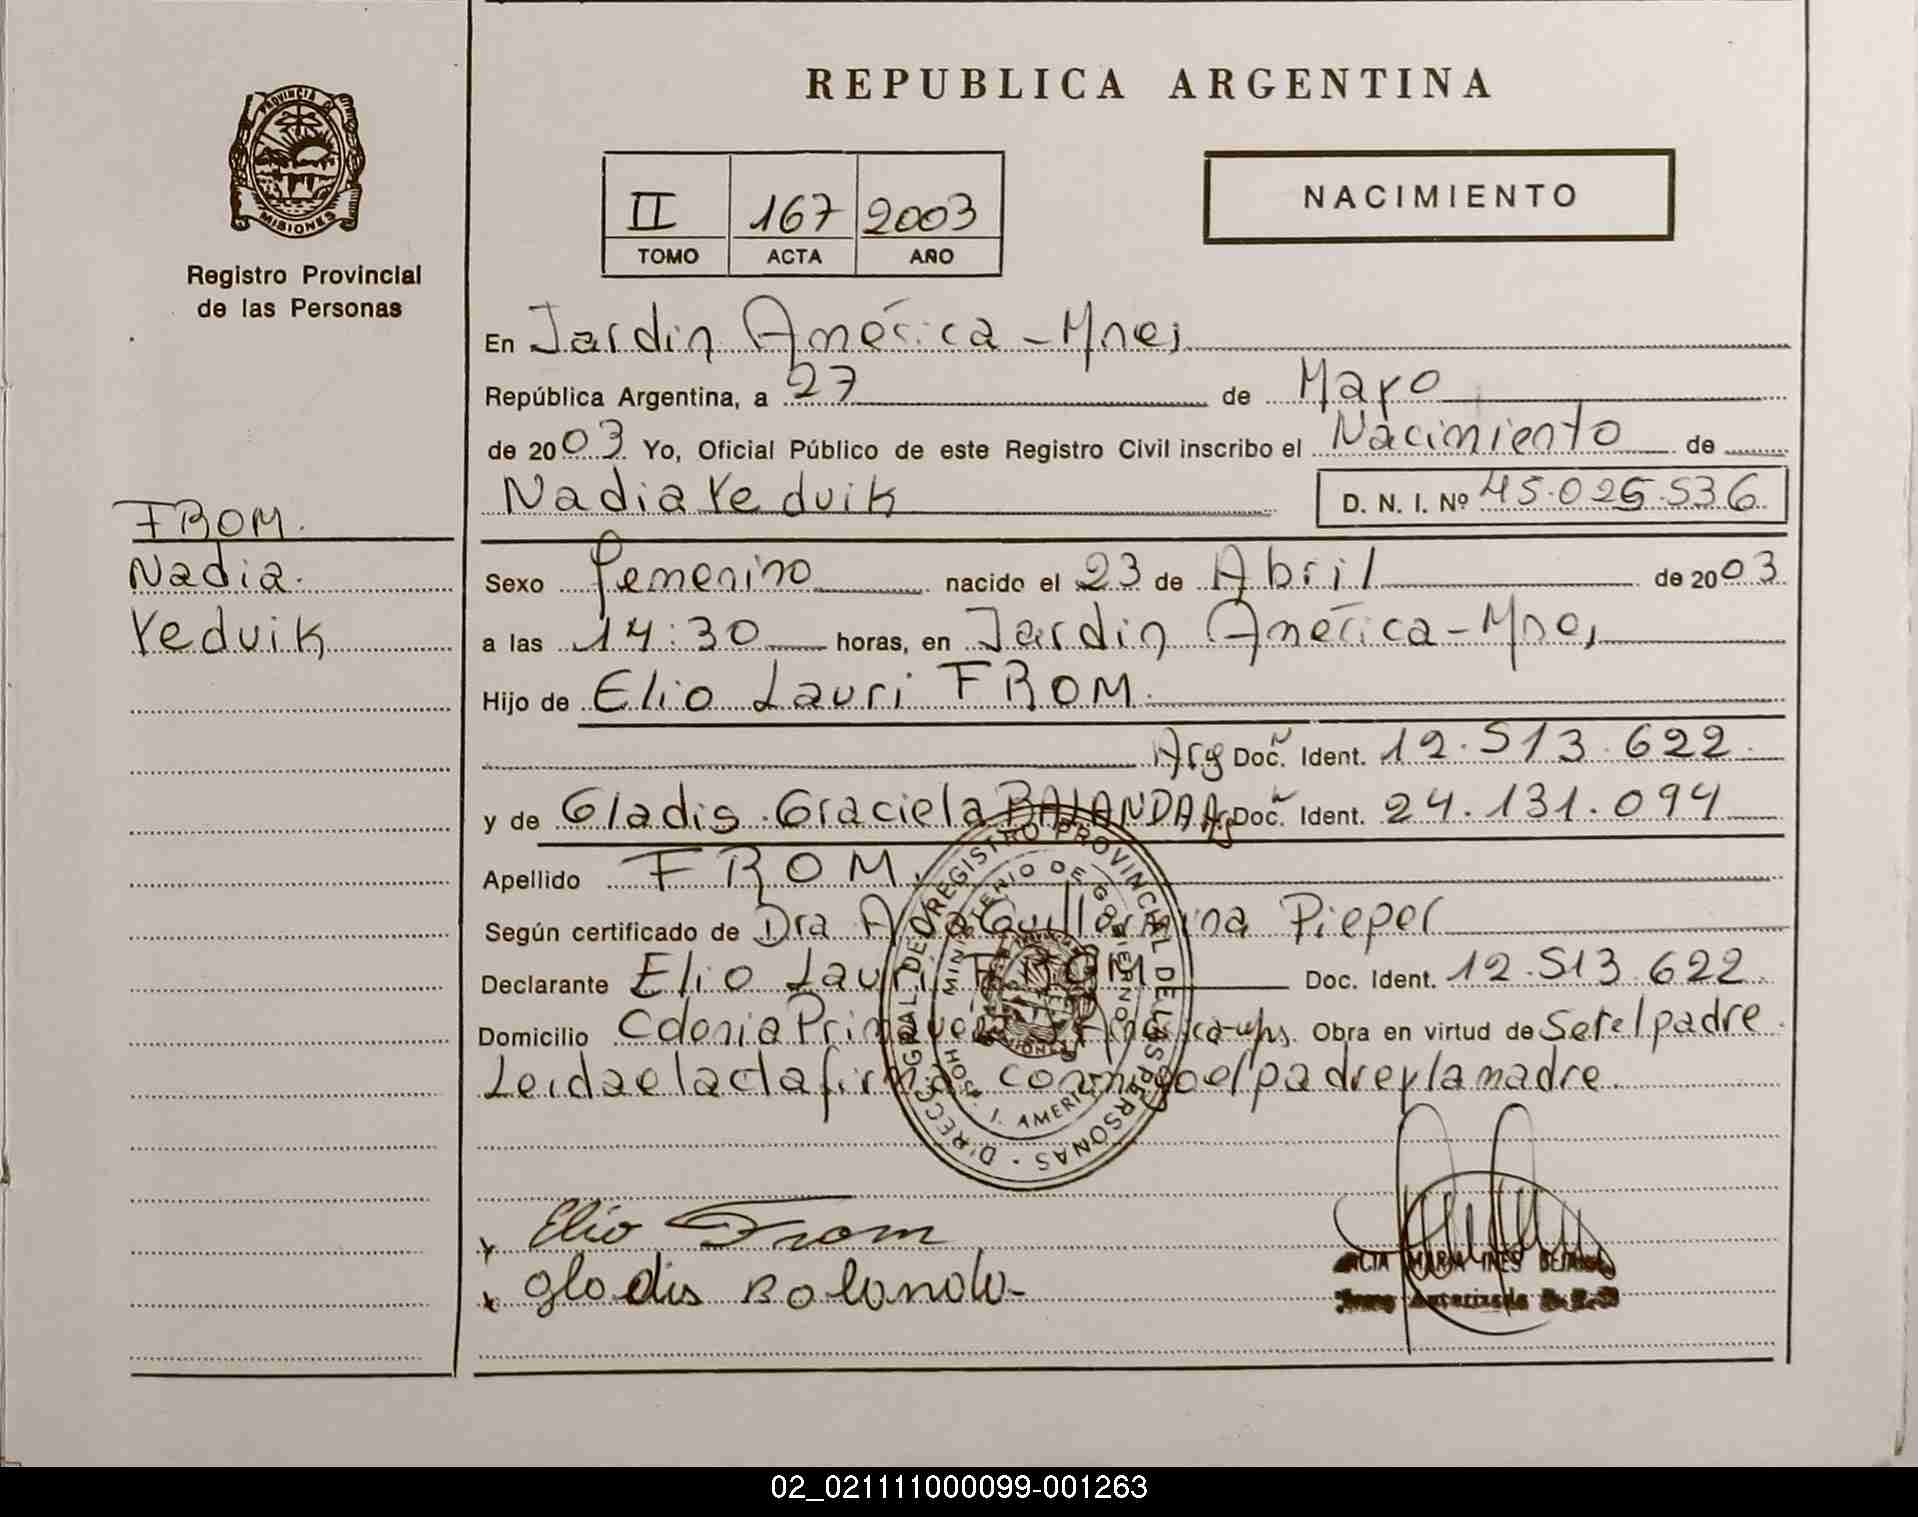 REPUBLICA ARGENTINA
PROVINCIA D
MISIONES
Registro Provincial
de las Personas
II 167 2003
TOMO ACTA AÑO
NACIMIENTO
En Jardin América - Mnes
República Argentina, a 27 de Mayo
de 2003 Yo, Oficial Público de este Registro Civil inscribo el Nacimiento de
Nadia Yeduik D. N. I. Nº 45.025.536
FROM.
Nadia.
Yeduik
Sexo femenino nacido el 23 de Abril de 2003
a las 14:30 horas, en Jardin América - Mnes
Hijo de Elio Lauri FROM.
Arg Doc. Ident. 12.513.622
y de Gladis Graciela BALANDA Arg Doc. Ident. 24.131.094
Apellido FROM.
Según certificado de Dra Ana Guillermina Pieper
Declarante Elio Lauri FROM Doc. Ident. 12.513.622
Domicilio Colonia Primavera Obra en virtud de Ser el padre.
Leida el acta firman conmigo el padre y la madre.
DIRECC. GRAL DEL REGISTRO PROVINCIAL DE LAS PERSONAS
MINISTERIO DE GOBIERNO
J. AMERICA
Elio From
Gladis Bolondo
MARIA INES
Autorizada
02_021111000099-001263